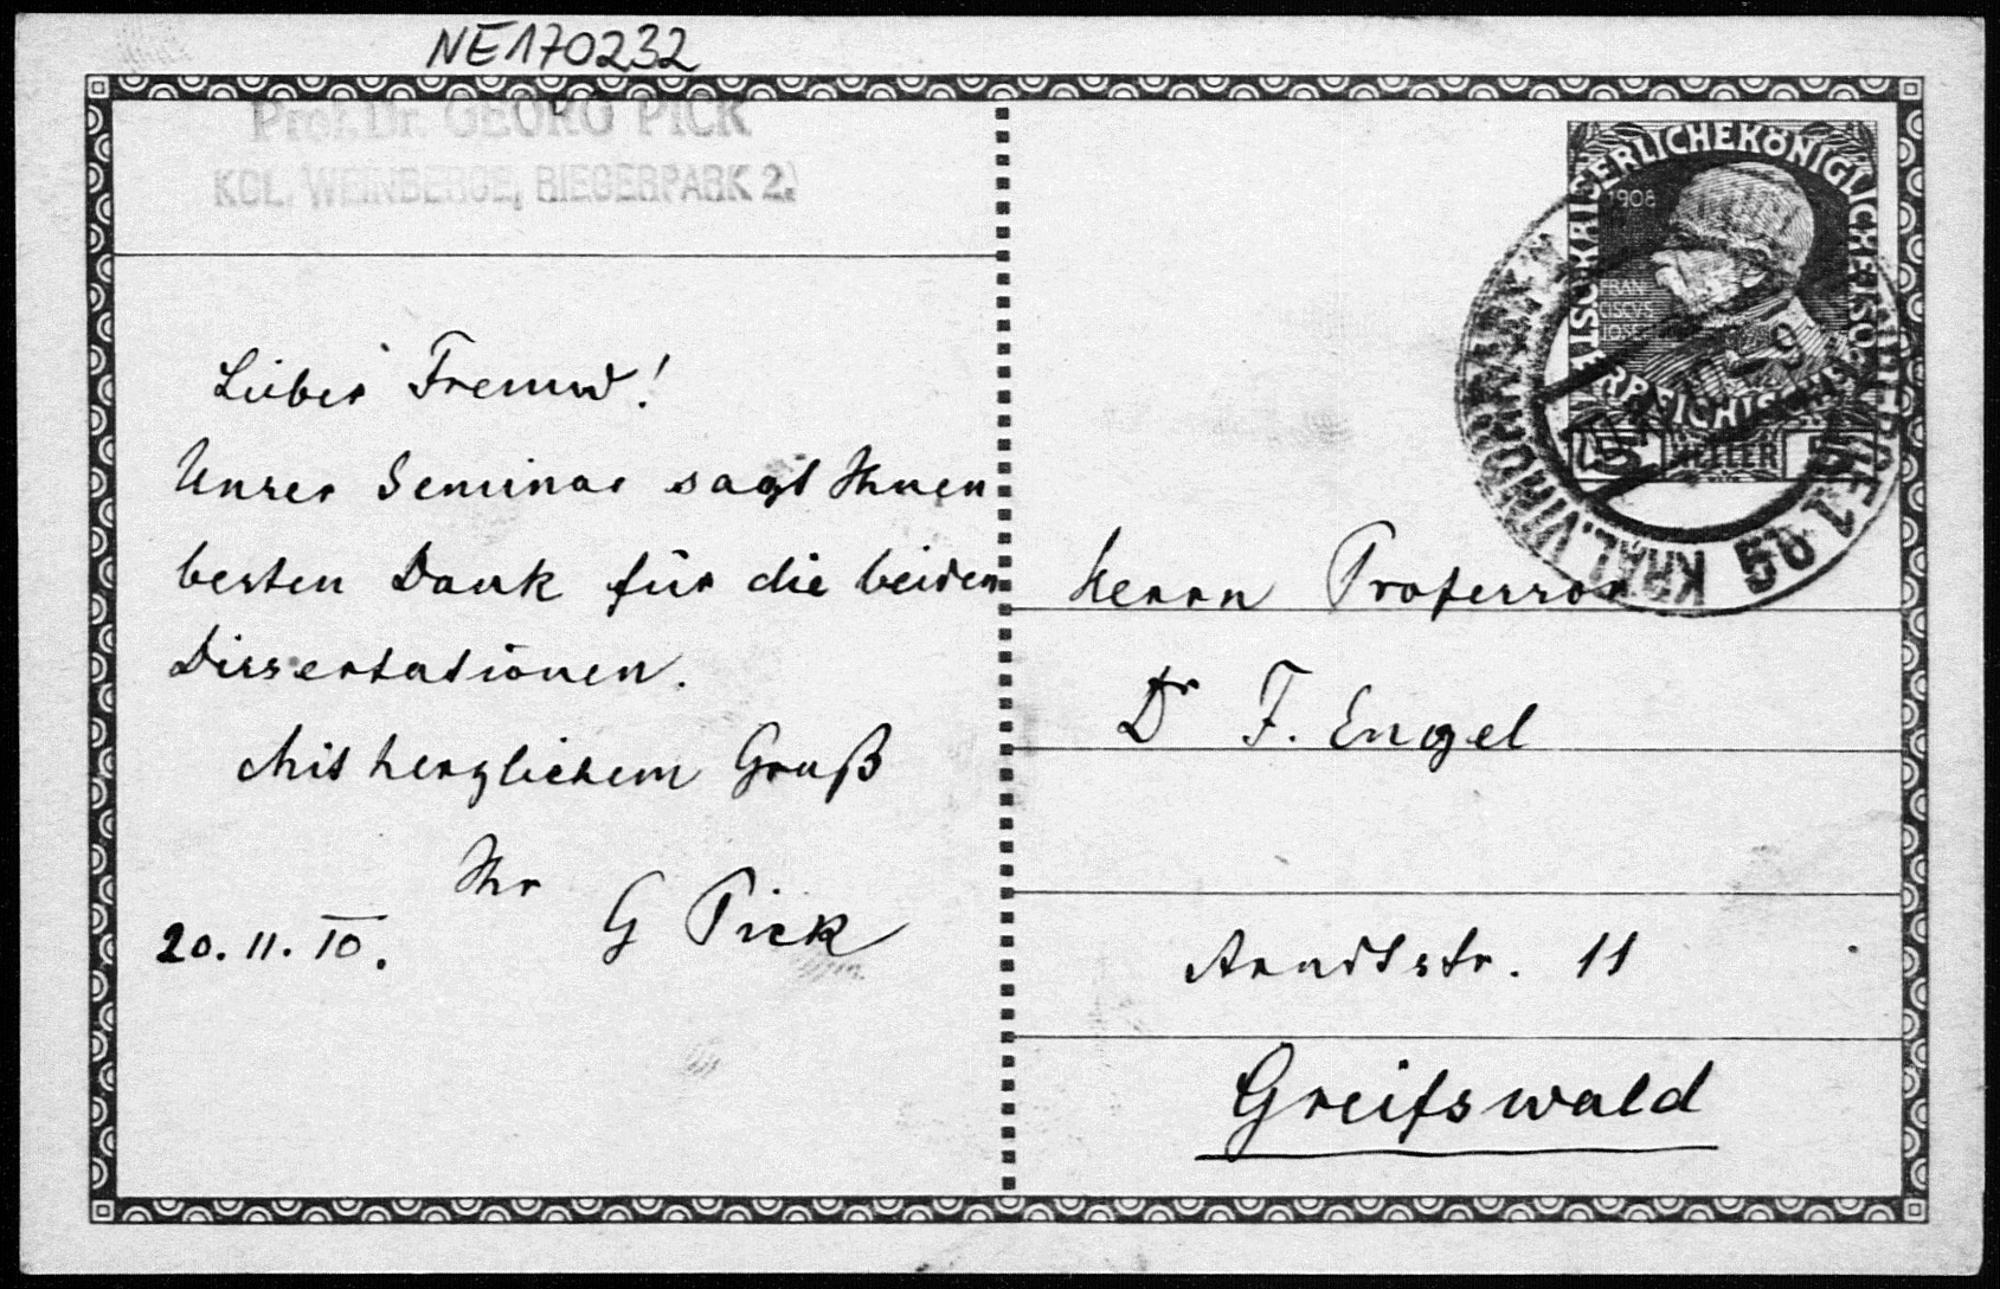 NE170232
Prof. Dr. GEORG PICK
KGL. WEINBERGE, RIEGERPARK 2.
Lieber Freund!
Unser Seminar sagt Ihnen
besten Dank für die beiden
Dissertationen.
Mit herzlichem Gruß
Ihr G Pick
20. 11. 10.
KAISERLICHEKÖNIGLICHE
ÖSTERREICHISCHE
1908
FRAN
CISCVS
5 HELLER 5
KRÁL. VINOHRADY
WEINBERGE 1
Herrn Professor
Dr F. Engel
Arndtstr. 11
Greifswald